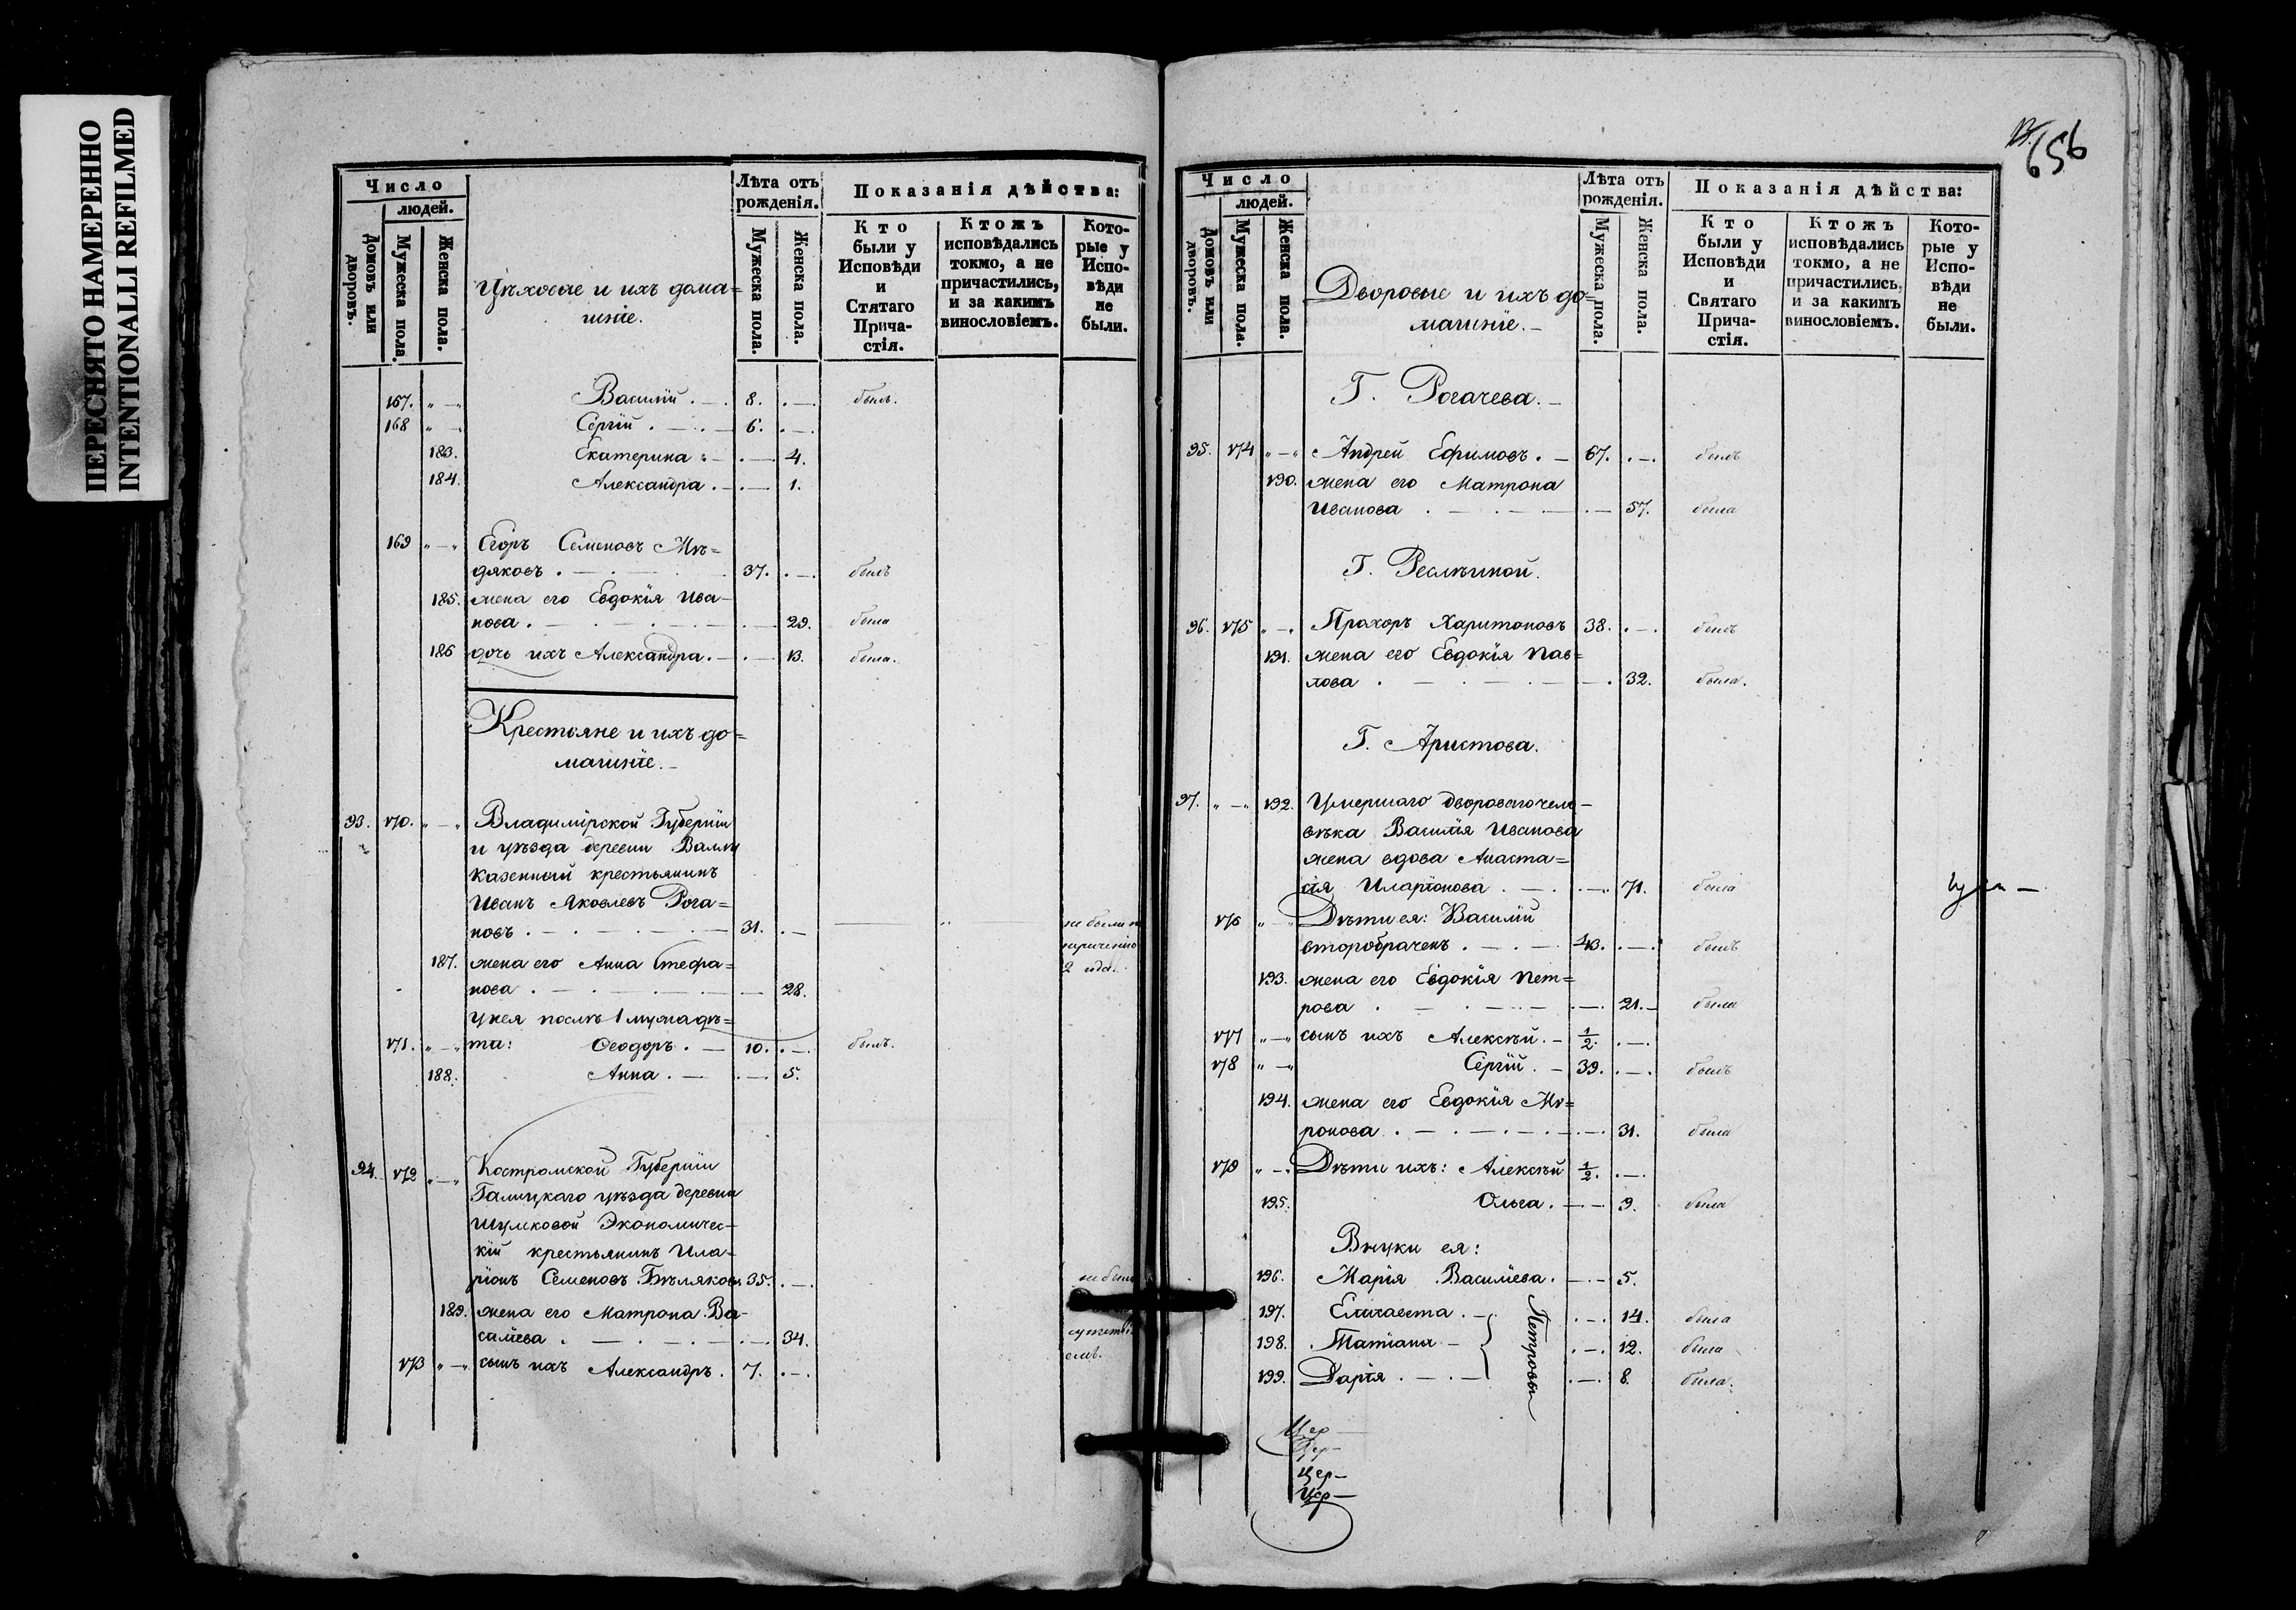 ПЕРЕСНЯТО НАМЕРЕННО
INTENTIONALLI REFILMED
Число
людей.
Домовъ или дворовъ.
Мужеска пола.
Женска пола.
Цѣховые и ихъ дома=
шніе.
Лѣта отъ
рожденія.
Мужеска пола.
Женска пола.
Показанія дѣйства:
Кто
были у
Исповѣди
и
Стятаго
Прича-
стія.
Ктожъ
исповѣдались
токмо, а не
причастились,
и за какимъ
винословіемъ.
Кото-
рые у
Испо-
вѣди
не
были.
167. „ — „ Василій . — . 8. . — . былъ.
168 „ — „ Сергій . — . — 6. . — .
183. Екатерина . — . — 4.
184. Александра . — . — 1.
169 „ — „ Егоръ Семеновъ Мѣ=
дяковъ . — . 37. . — . былъ
185. жена его Евдокія Ива-
нова . — . — 29. была
186 дочь ихъ Александра. — . — 13. была.
Крестьяне и ихъ до=
машніе. —
93. 170. „ — „ Владимірской Губерніи
и уѣзда деревни
казенный крестьянинъ
Иванъ Яковлевъ Рога=
новъ . — . — 31. . — не были
2 года.
187. жена его Анна Стефа=
нова . — . — 28.
у нея послѣ 1 мужа дѣ=
171. „ — „ та: Ѳеодоръ . — 10. . — . былъ.
188. Анна . — . — 5.
94. 172 „ — „ Костромской Губерніи
Галицкаго уѣзда деревни
Шумковой Экономичес-
кій крестьянинъ Ила-
ріонъ Семеновъ Бѣляковъ 35. . — . не были
189. жена его Матрона Ва-
силіева . — . — 34.
173 „ — „ сынъ ихъ Александръ . 7. . — .
656
Число
людей.
Домовъ или дворовъ.
Мужеска пола.
Женска пола.
Дворовые и ихъ до=
машніе. —
Лѣта отъ
рожденія.
Мужеска пола.
Женска пола.
Показанія дѣйства:
Кто
были у
Исповѣди
и
Святаго
Прича-
стія.
Ктожъ
исповѣдались
токмо, а не
причастились,
и за какимъ
винословіемъ.
Кото-
рые у
Испо-
вѣди
не
были.
Г. Рогачева. —
95. 174 „ — „ Андрей Ефимовъ . — 67. . — . былъ
190. жена его Матрона
Иванова . — . — 57. была
Г.
96. 175 „ — „ Прохоръ Харитоновъ 38. . — . былъ
191. жена его Евдокія Пав=
лова . — . — 32. была.
Г. Аристова.
97. „ — „ 192. Умершаго двороваго чело-
вѣка Василія Иванова
жена вдова Анаста=
сія Иларіонова . — . — 71. была
176 „ — „ Дѣти ея: Василій
второбраченъ . — . — 43. . — . былъ
193. жена его Евдокія Пет=
рова . — . — 21. — была
177 „ — „ сынъ ихъ Алексѣй. — 1/2. . — .
178 „ — „ Сергій . — 39. . — . былъ
194. жена его Евдокія Мѵ=
ронова . — . — 31. была
179 „ — „ Дѣти ихъ: Алексѣй 1/2. . — .
195. Ольга . — . — 9. была
Внуки ея:
196. Марія Василіева . — . — 5.
197. Елисавета . — . — 14. была
198. Татіана — . — 12. была
199. Дарія . — . — 8. была.
Петровы
Цер —
Цер —
Цер —
Цер —